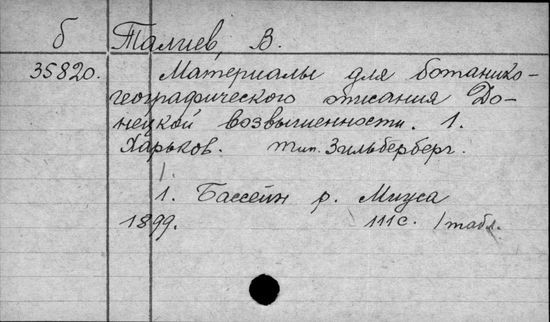 б Талиев, В.
35820. Материалы для ботанико-
географического описания До-
нецкой возвышенности. 1.
Харьков. тип. Зильберберг.
1.
1. Бассейн р. Миуса
1899. 111с. 1табл.